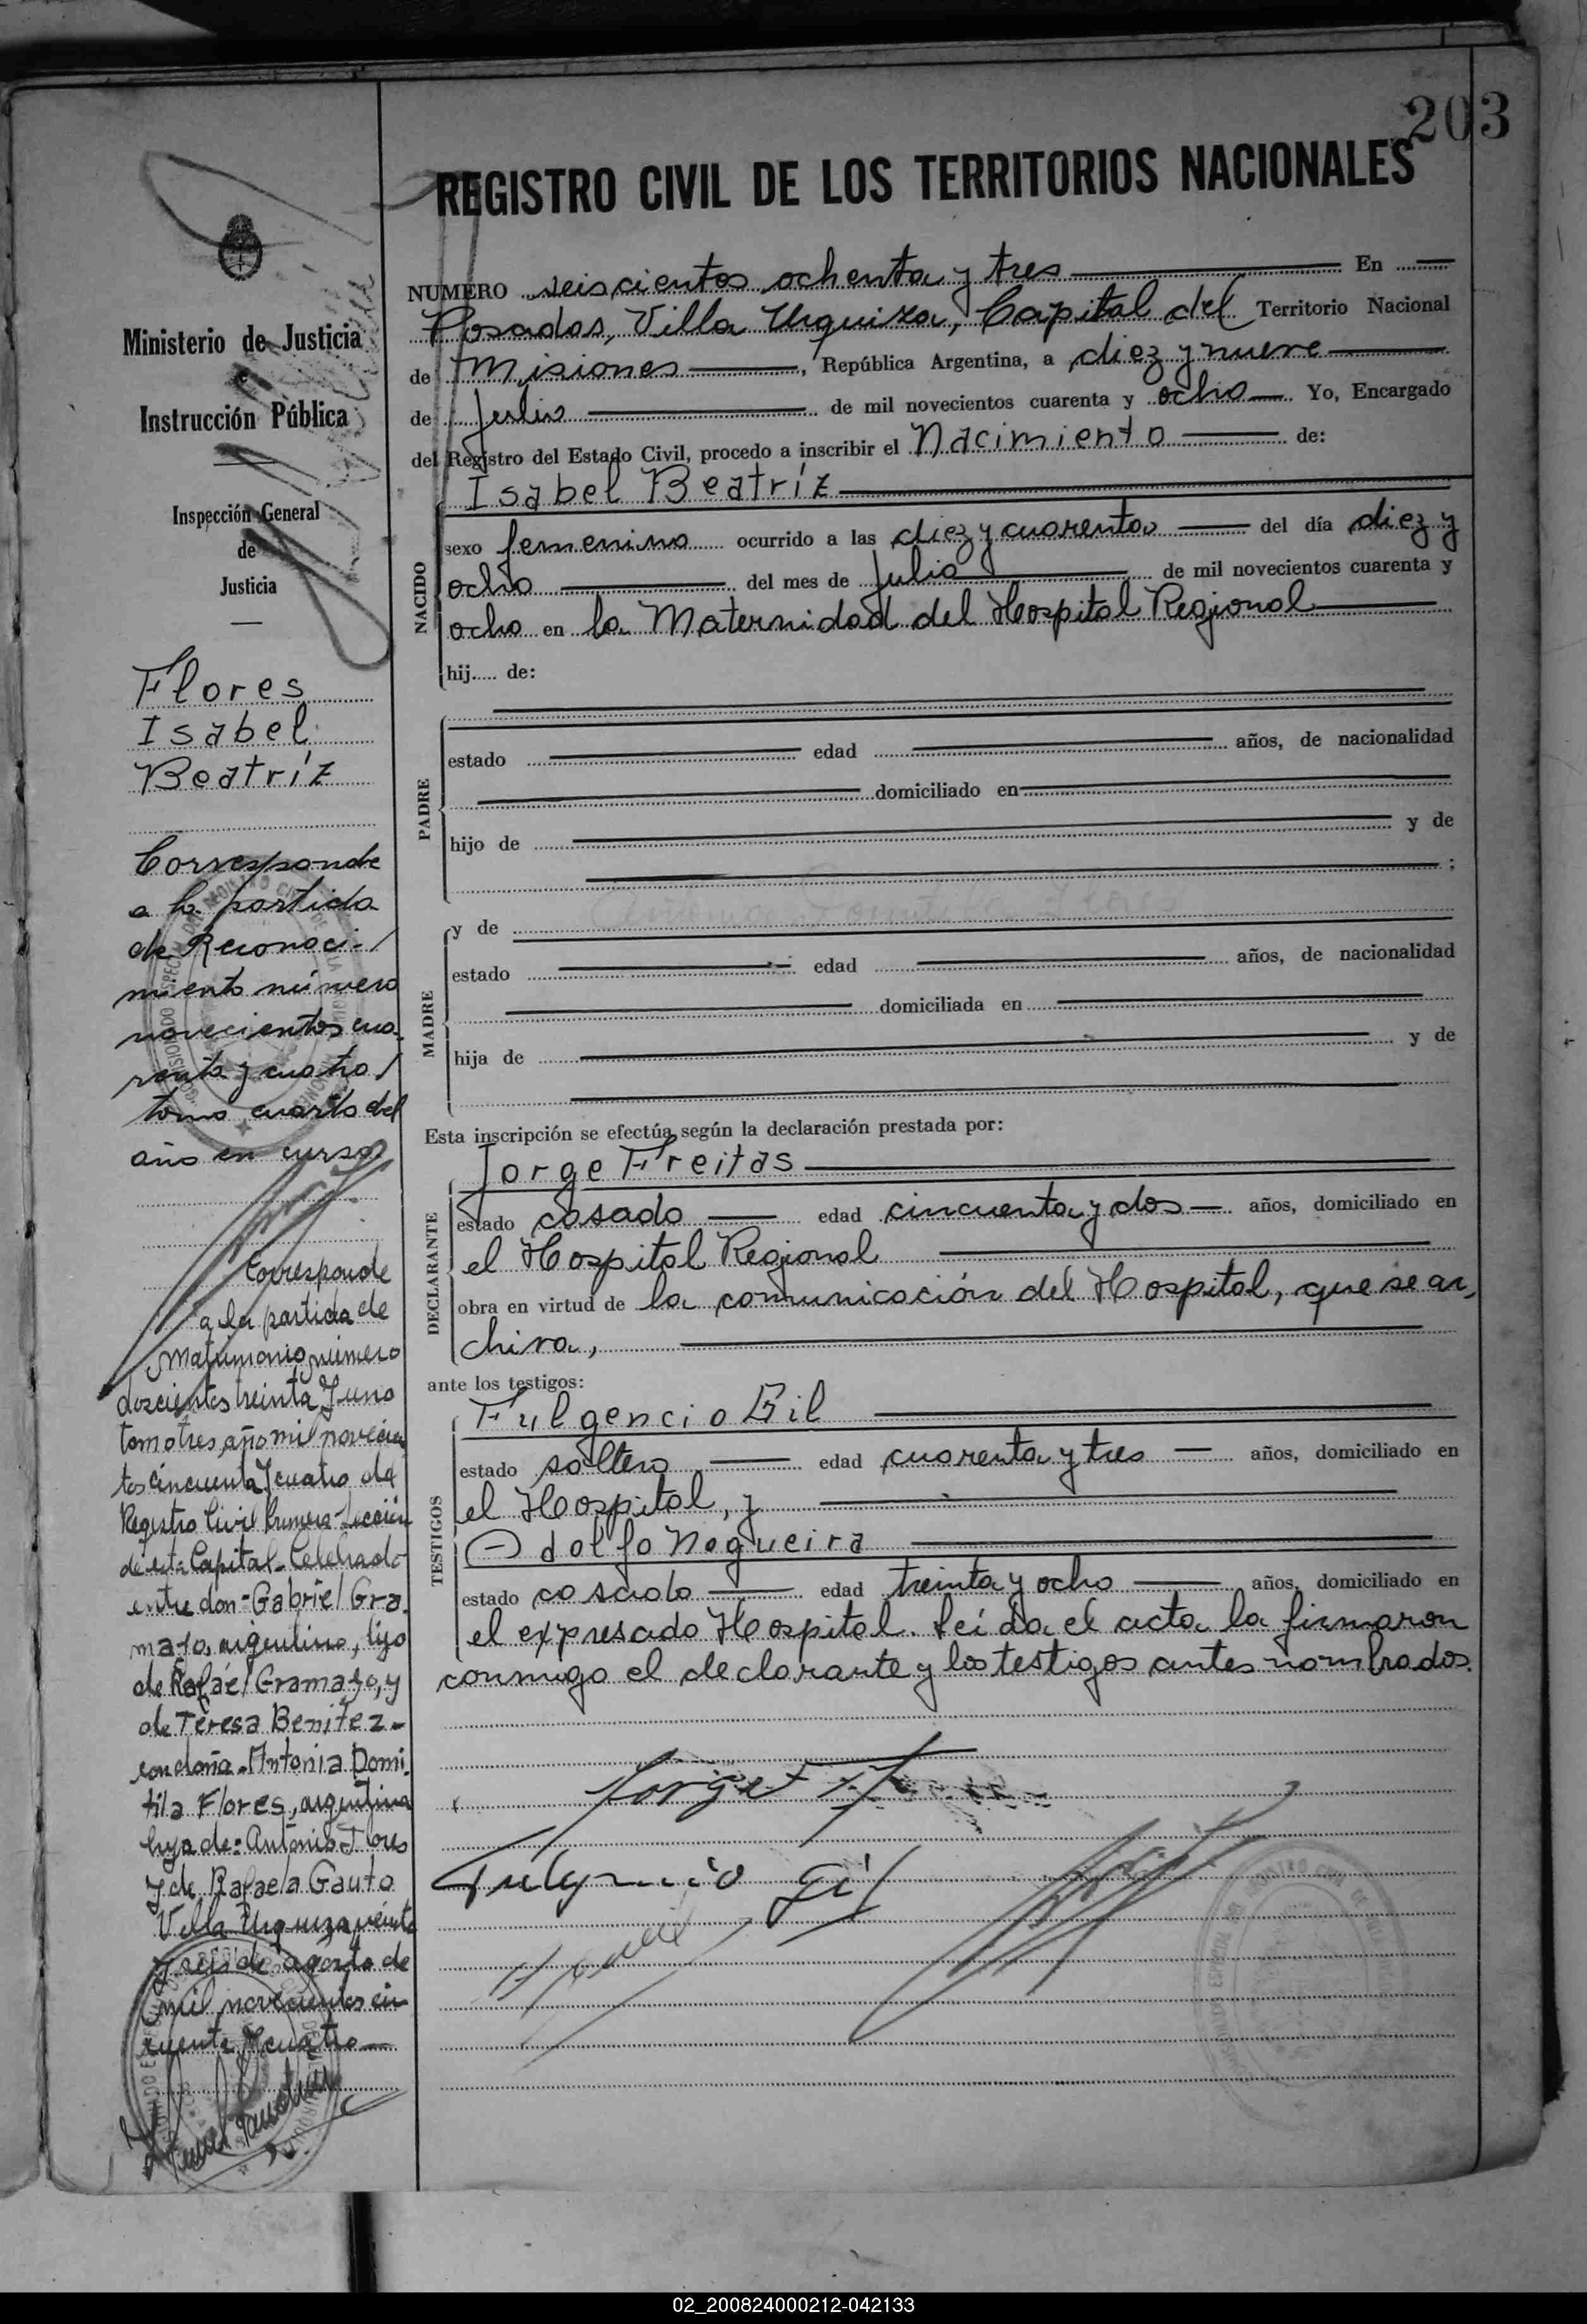 203
REGISTRO CIVIL DE LOS TERRITORIOS NACIONALES
Ministerio de Justicia
e
Instrucción Pública
Inspección General
de
Justicia
Flores
Isabel
Beatríz
Corresponde
a la partida
de Reconoci-
miento número
novecientos cua-
renta y cuatro
tomo cuarto del
año en curso
Corresponde
a la partida de
Matrimonio número
doscientos treinta y uno
tomo tres, año mil novecien
tos cincuenta y cuatro del
Registro Civil Primera Sección
de esta Capital-Celebrado
entre don-Gabriel Gra-
majo, argentino, hijo
de Rafael Gramajo, y
de Teresa Benitez-
con doña-Antonia Domi-
tila Flores, argentina
hija de: Antonio Flores
y de Rafaela Gauto
Villa Urquiza veinte
y seis de agosto de
mil novecientos cin
cuenta y cuatro
NUMERO seiscientos ochenta y tres En
Posadas, Villa Urquiza, Capital del Territorio Nacional
de Misiones, República Argentina, a diez y nueve
de Julio de mil novecientos cuarenta y ocho Yo, Encargado
del Registro del Estado Civil, procedo a inscribir el Nacimiento de:
NACIDO
Isabel Beatríz
sexo femenino ocurrido a las diez y cuarenta del día diez y
ocho del mes de Julio de mil novecientos cuarenta y
ocho en la Maternidad del Hospital Regional
hij..... de:
PADRE
estado edad años, de nacionalidad
domiciliado en
hijo de y de
;
MADRE
y de
estado edad años, de nacionalidad
domiciliada en
hija de y de
Esta inscripción se efectúa según la declaración prestada por:
DECLARANTE
Jorge Freitas
estado casado edad cincuenta y dos años, domiciliado en
el Hospital Regional
obra en virtud de la comunicación del Hospital, que se ar-
chiva,
ante los testigos:
TESTIGOS
Fulgencio Gil
estado soltero edad cuarenta y tres años, domiciliado en
el Hospital, y
Adolfo Nogueira
estado casado edad treinta y ocho años, domiciliado en
el expresado Hospital. Leída el acta la firmaron
conmigo el declarante y los testigos antes nombrados.
Jorge F
Fulgencio Gil
02_200824000212-042133